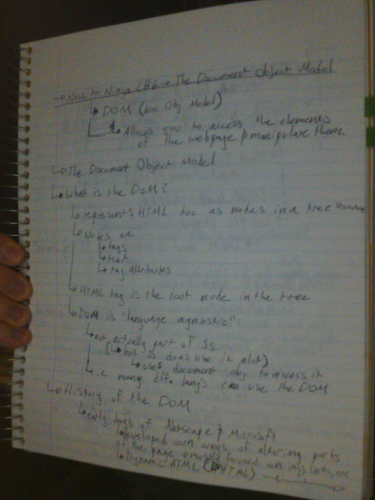 → Novice to Ninja CH6 → The Document Object Model
↳ DOM (doc Obj Model)
↳ Allows you to access the elements
of the webpage & manipulate them.
↳ The Document Object Model
↳ What is the DOM?
↳ represents HTML doc as nodes in a tree structure
↳ Nodes are
↳ tags
↳ text
↳ tag attributes
↳ HTML tag is the root node in the tree
↳ DOM is "language agnostic"
↳ not actually part of JS
(↳ but JS does use it alot)
↳ uses document obj to access it
↳ i.e. many diff. lang's can use the DOM
↳ History of the DOM
↳ early days of Netscape & Microsoft
↳ developed own ways of altering parts
of the page
↳ Dynamic HTML (DHTML)